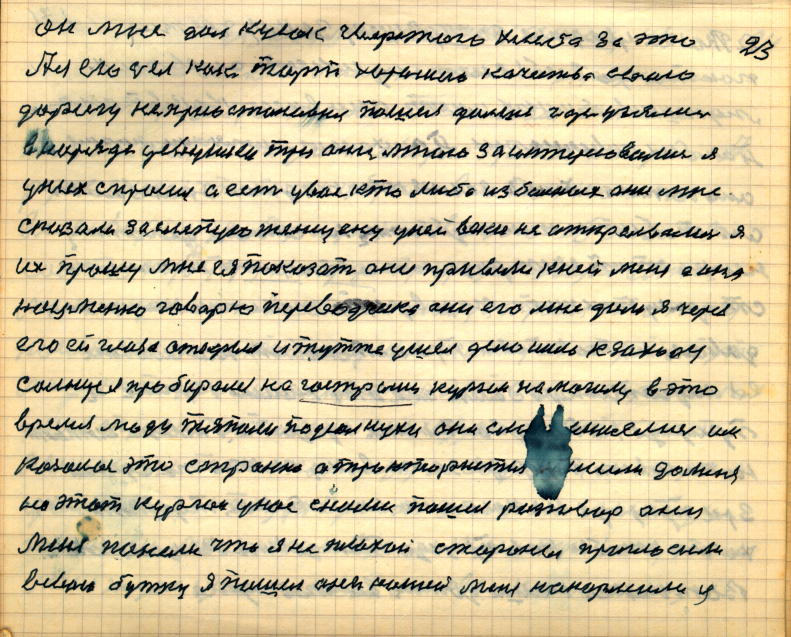 он мне дал кусок черствого хлеба за это 23
Ая его сел как торт хорошиго качества свою
дорогу неприостановил пошел дальше где умылися
внаряде девчушки три они мною заинтересовалися я
униих спросил а ест увас кто либо из больных они мне
сказали заслепую женщену уней веки не открывались я
их прошу мне ея показат они привели кней меня а она
немка говарю переводчика они его мне дали я через
его ей глаза открыл итутже ушел дело шло кзаходу
солнуся пробирался на гострый курган намогилу вэто
время люди тяпали подсолнухи они смеялися им
казалос это странно а трактористы шли доменя
на этот курган унас сними пошел разговор они
меня поняли что я не плохой стороны пригласили
всвою будку я пошел они кашей меня накормили я